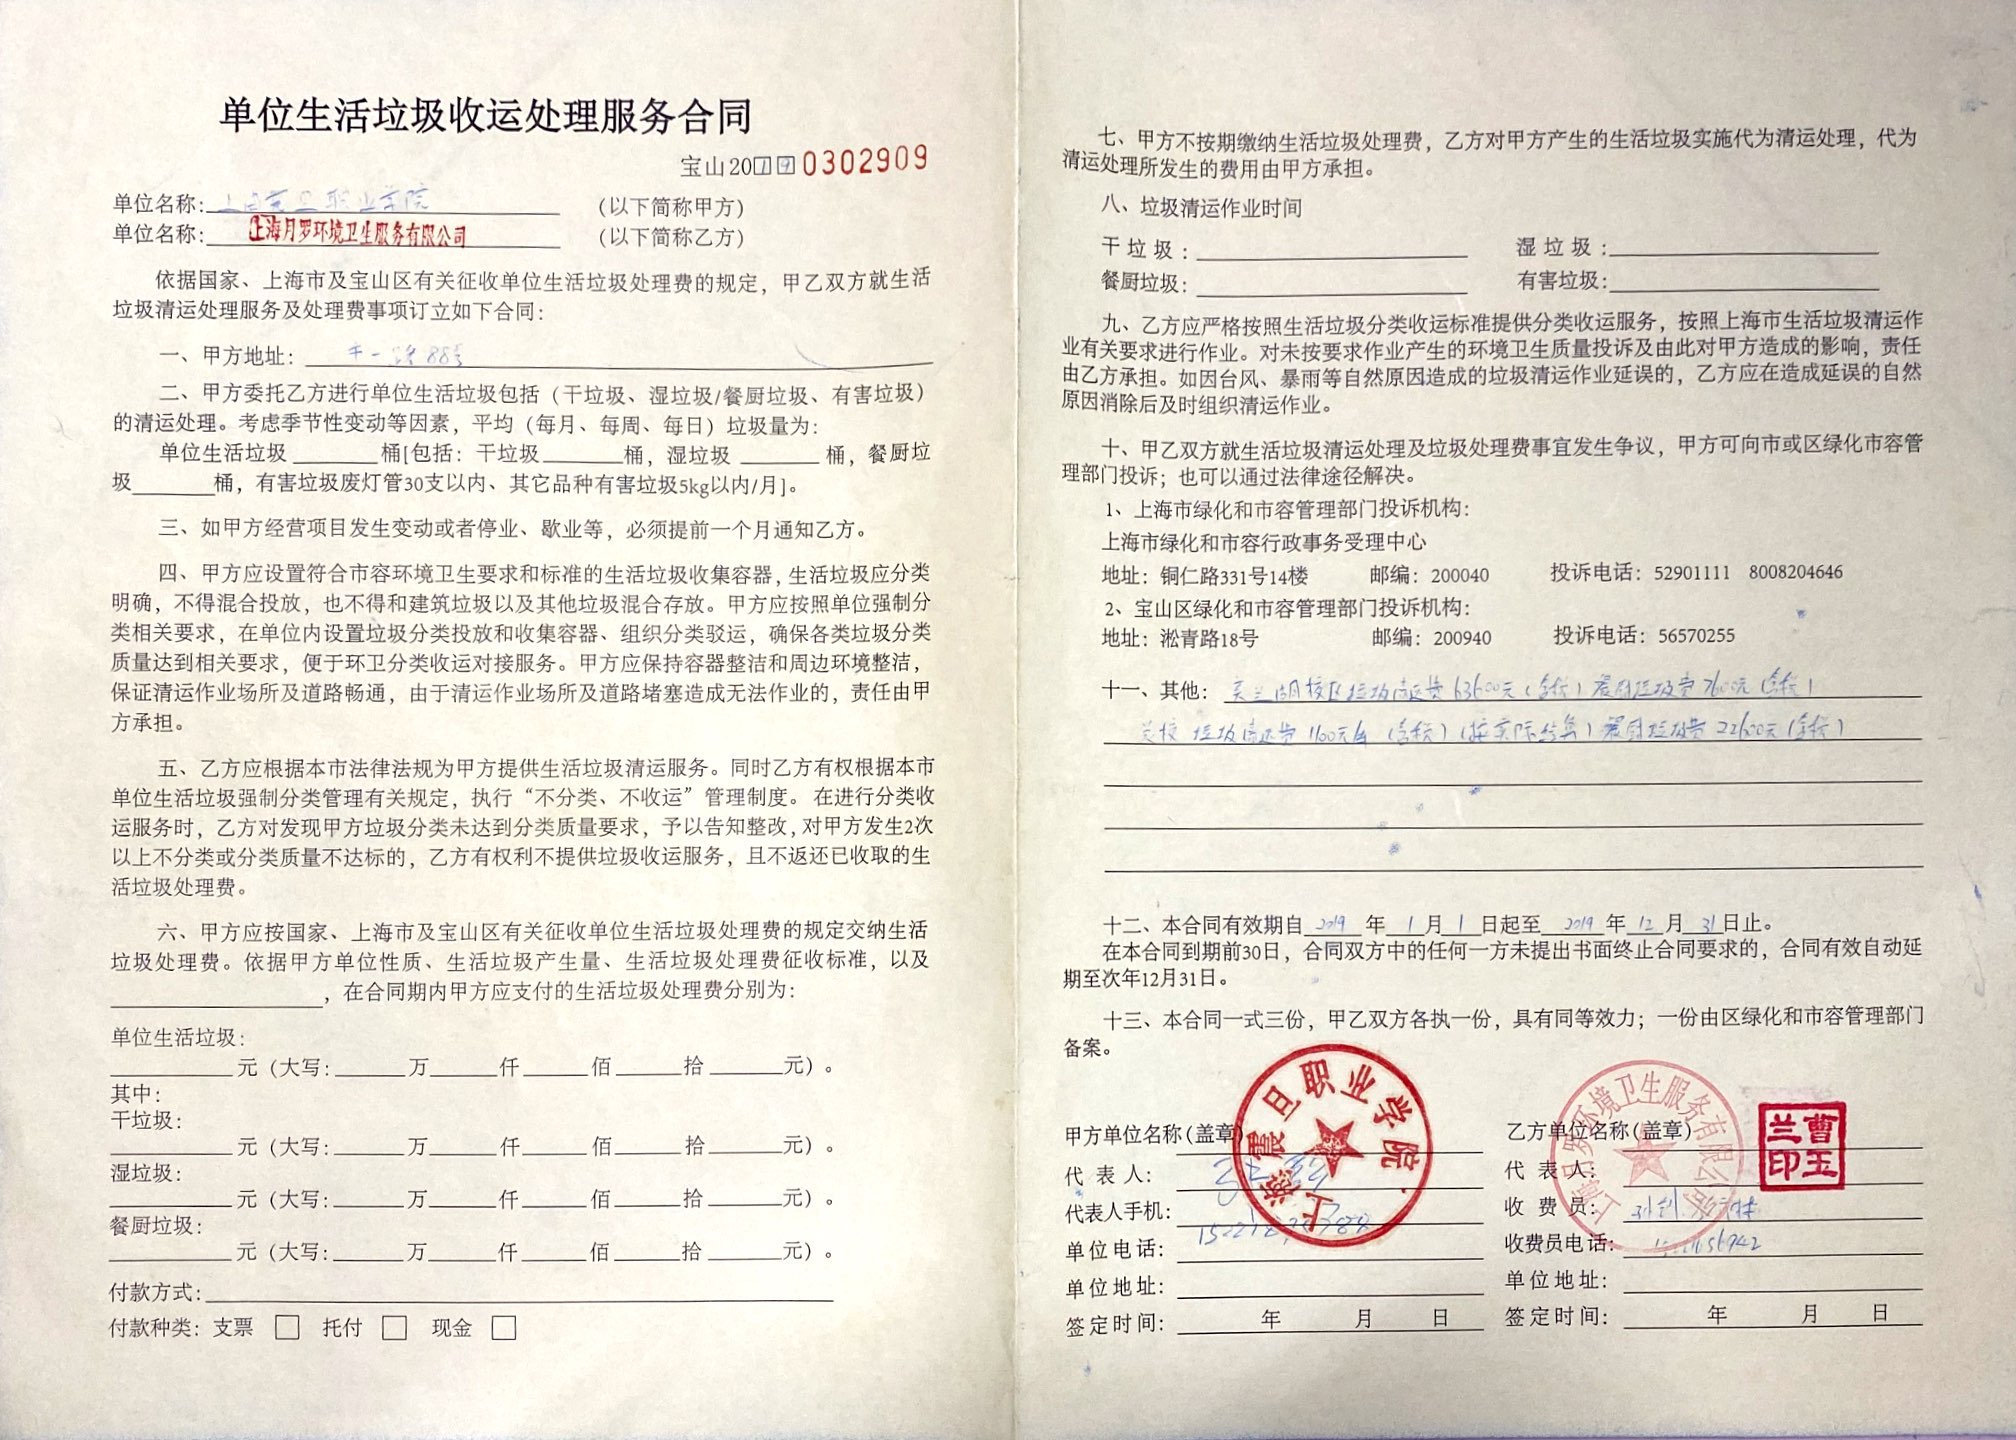 单位生活垃圾收运处理服务合同
宝山2019 0302909
单位名称：上海震旦职业学院 （以下简称甲方）
单位名称：上海月罗环境卫生服务有限公司 （以下简称乙方）
依据国家、上海市及宝山区有关征收单位生活垃圾处理费的规定，甲乙双方就生活
垃圾清运处理服务及处理费事项订立如下合同：
一、甲方地址： 88号
二、甲方委托乙方进行单位生活垃圾包括（干垃圾、湿垃圾/餐厨垃圾、有害垃圾）
的清运处理。考虑季节性变动等因素，平均（每月、每周、每日）垃圾量为：
单位生活垃圾 桶[包括：干垃圾 桶，湿垃圾 桶，餐厨垃
圾 桶，有害垃圾废灯管30支以内、其它品种有害垃圾5kg以内/月]。
三、如甲方经营项目发生变动或者停业、歇业等，必须提前一个月通知乙方。
四、甲方应设置符合市容环境卫生要求和标准的生活垃圾收集容器，生活垃圾应分类
明确，不得混合投放，也不得和建筑垃圾以及其他垃圾混合存放。甲方应按照单位强制分
类相关要求，在单位内设置垃圾分类投放和收集容器、组织分类驳运，确保各类垃圾分类
质量达到相关要求，便于环卫分类收运对接服务。甲方应保持容器整洁和周边环境整洁，
保证清运作业场所及道路畅通，由于清运作业场所及道路堵塞造成无法作业的，责任由甲
方承担。
五、乙方应根据本市法律法规为甲方提供生活垃圾清运服务。同时乙方有权根据本市
单位生活垃圾强制分类管理有关规定，执行“不分类、不收运”管理制度。在进行分类收
运服务时，乙方对发现甲方垃圾分类未达到分类质量要求，予以告知整改，对甲方发生2次
以上不分类或分类质量不达标的，乙方有权利不提供垃圾收运服务，且不返还已收取的生
活垃圾处理费。
六、甲方应按国家、上海市及宝山区有关征收单位生活垃圾处理费的规定交纳生活
垃圾处理费。依据甲方单位性质、生活垃圾产生量、生活垃圾处理费征收标准，以及
，在合同期内甲方应支付的生活垃圾处理费分别为：
单位生活垃圾：
元（大写： 万 仟 佰 拾 元）。
其中：
干垃圾：
元（大写： 万 仟 佰 拾 元）。
湿垃圾：
元（大写： 万 仟 佰 拾 元）。
餐厨垃圾：
元（大写： 万 仟 佰 拾 元）。
付款方式：
付款种类：支票 □ 托付 □ 现金 □
七、甲方不按期缴纳生活垃圾处理费，乙方对甲方产生的生活垃圾实施代为清运处理，代为
清运处理所发生的费用由甲方承担。
八、垃圾清运作业时间
干垃圾： 湿垃圾：
餐厨垃圾： 有害垃圾：
九、乙方应严格按照生活垃圾分类收运标准提供分类收运服务，按照上海市生活垃圾清运作
业有关要求进行作业。对未按要求作业产生的环境卫生质量投诉及由此对甲方造成的影响，责任
由乙方承担。如因台风、暴雨等自然原因造成的垃圾清运作业延误的，乙方应在造成延误的自然
原因消除后及时组织清运作业。
十、甲乙双方就生活垃圾清运处理及垃圾处理费事宜发生争议，甲方可向市或区绿化市容管
理部门投诉；也可以通过法律途径解决。
1、上海市绿化和市容管理部门投诉机构：
上海市绿化和市容行政事务受理中心
地址：铜仁路331号14楼 邮编：200040 投诉电话：52901111 8008204646
2、宝山区绿化和市容管理部门投诉机构：
地址：淞青路18号 邮编：200940 投诉电话：56570255
十一、其他：美兰湖校区垃圾清运费63600元（含税）餐厨垃圾费7600元（含税）
总校 垃圾清运费1100元/车（含税）（按实际结算）餐厨垃圾费22600元（含税）
十二、本合同有效期自 2019 年 1 月 1 日起至 2019 年 12 月 31 日止。
在本合同到期前30日，合同双方中的任何一方未提出书面终止合同要求的，合同有效自动延
期至次年12月31日。
十三、本合同一式三份，甲乙双方各执一份，具有同等效力；一份由区绿化和市容管理部门
备案。
上海震旦职业学院
上海月罗环境卫生服务有限公司
曹玉兰印
甲方单位名称（盖章） 乙方单位名称（盖章）
代表人： 代表人：
代表人手机： 收费员：
单位电话： 收费员电话：
单位地址： 单位地址：
签定时间： 年 月 日 签定时间： 年 月 日